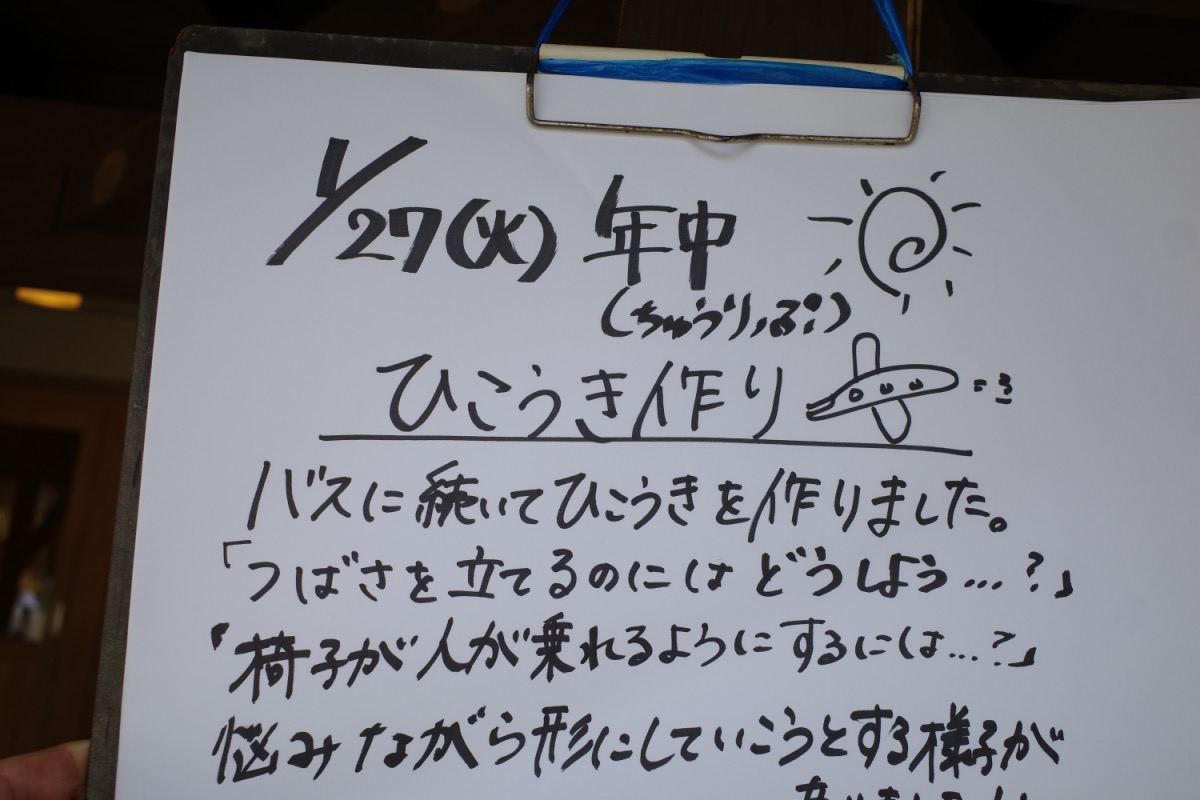 1/27(火) 年中
(ちゅうりっぷ)
ひこうき作り
バスに続いてひこうきを作りました。
「つばさを立てるのにはどうしよう…?」
「椅子が人が乗れるようにするには…?」
悩みながら形にしていこうとする様子が